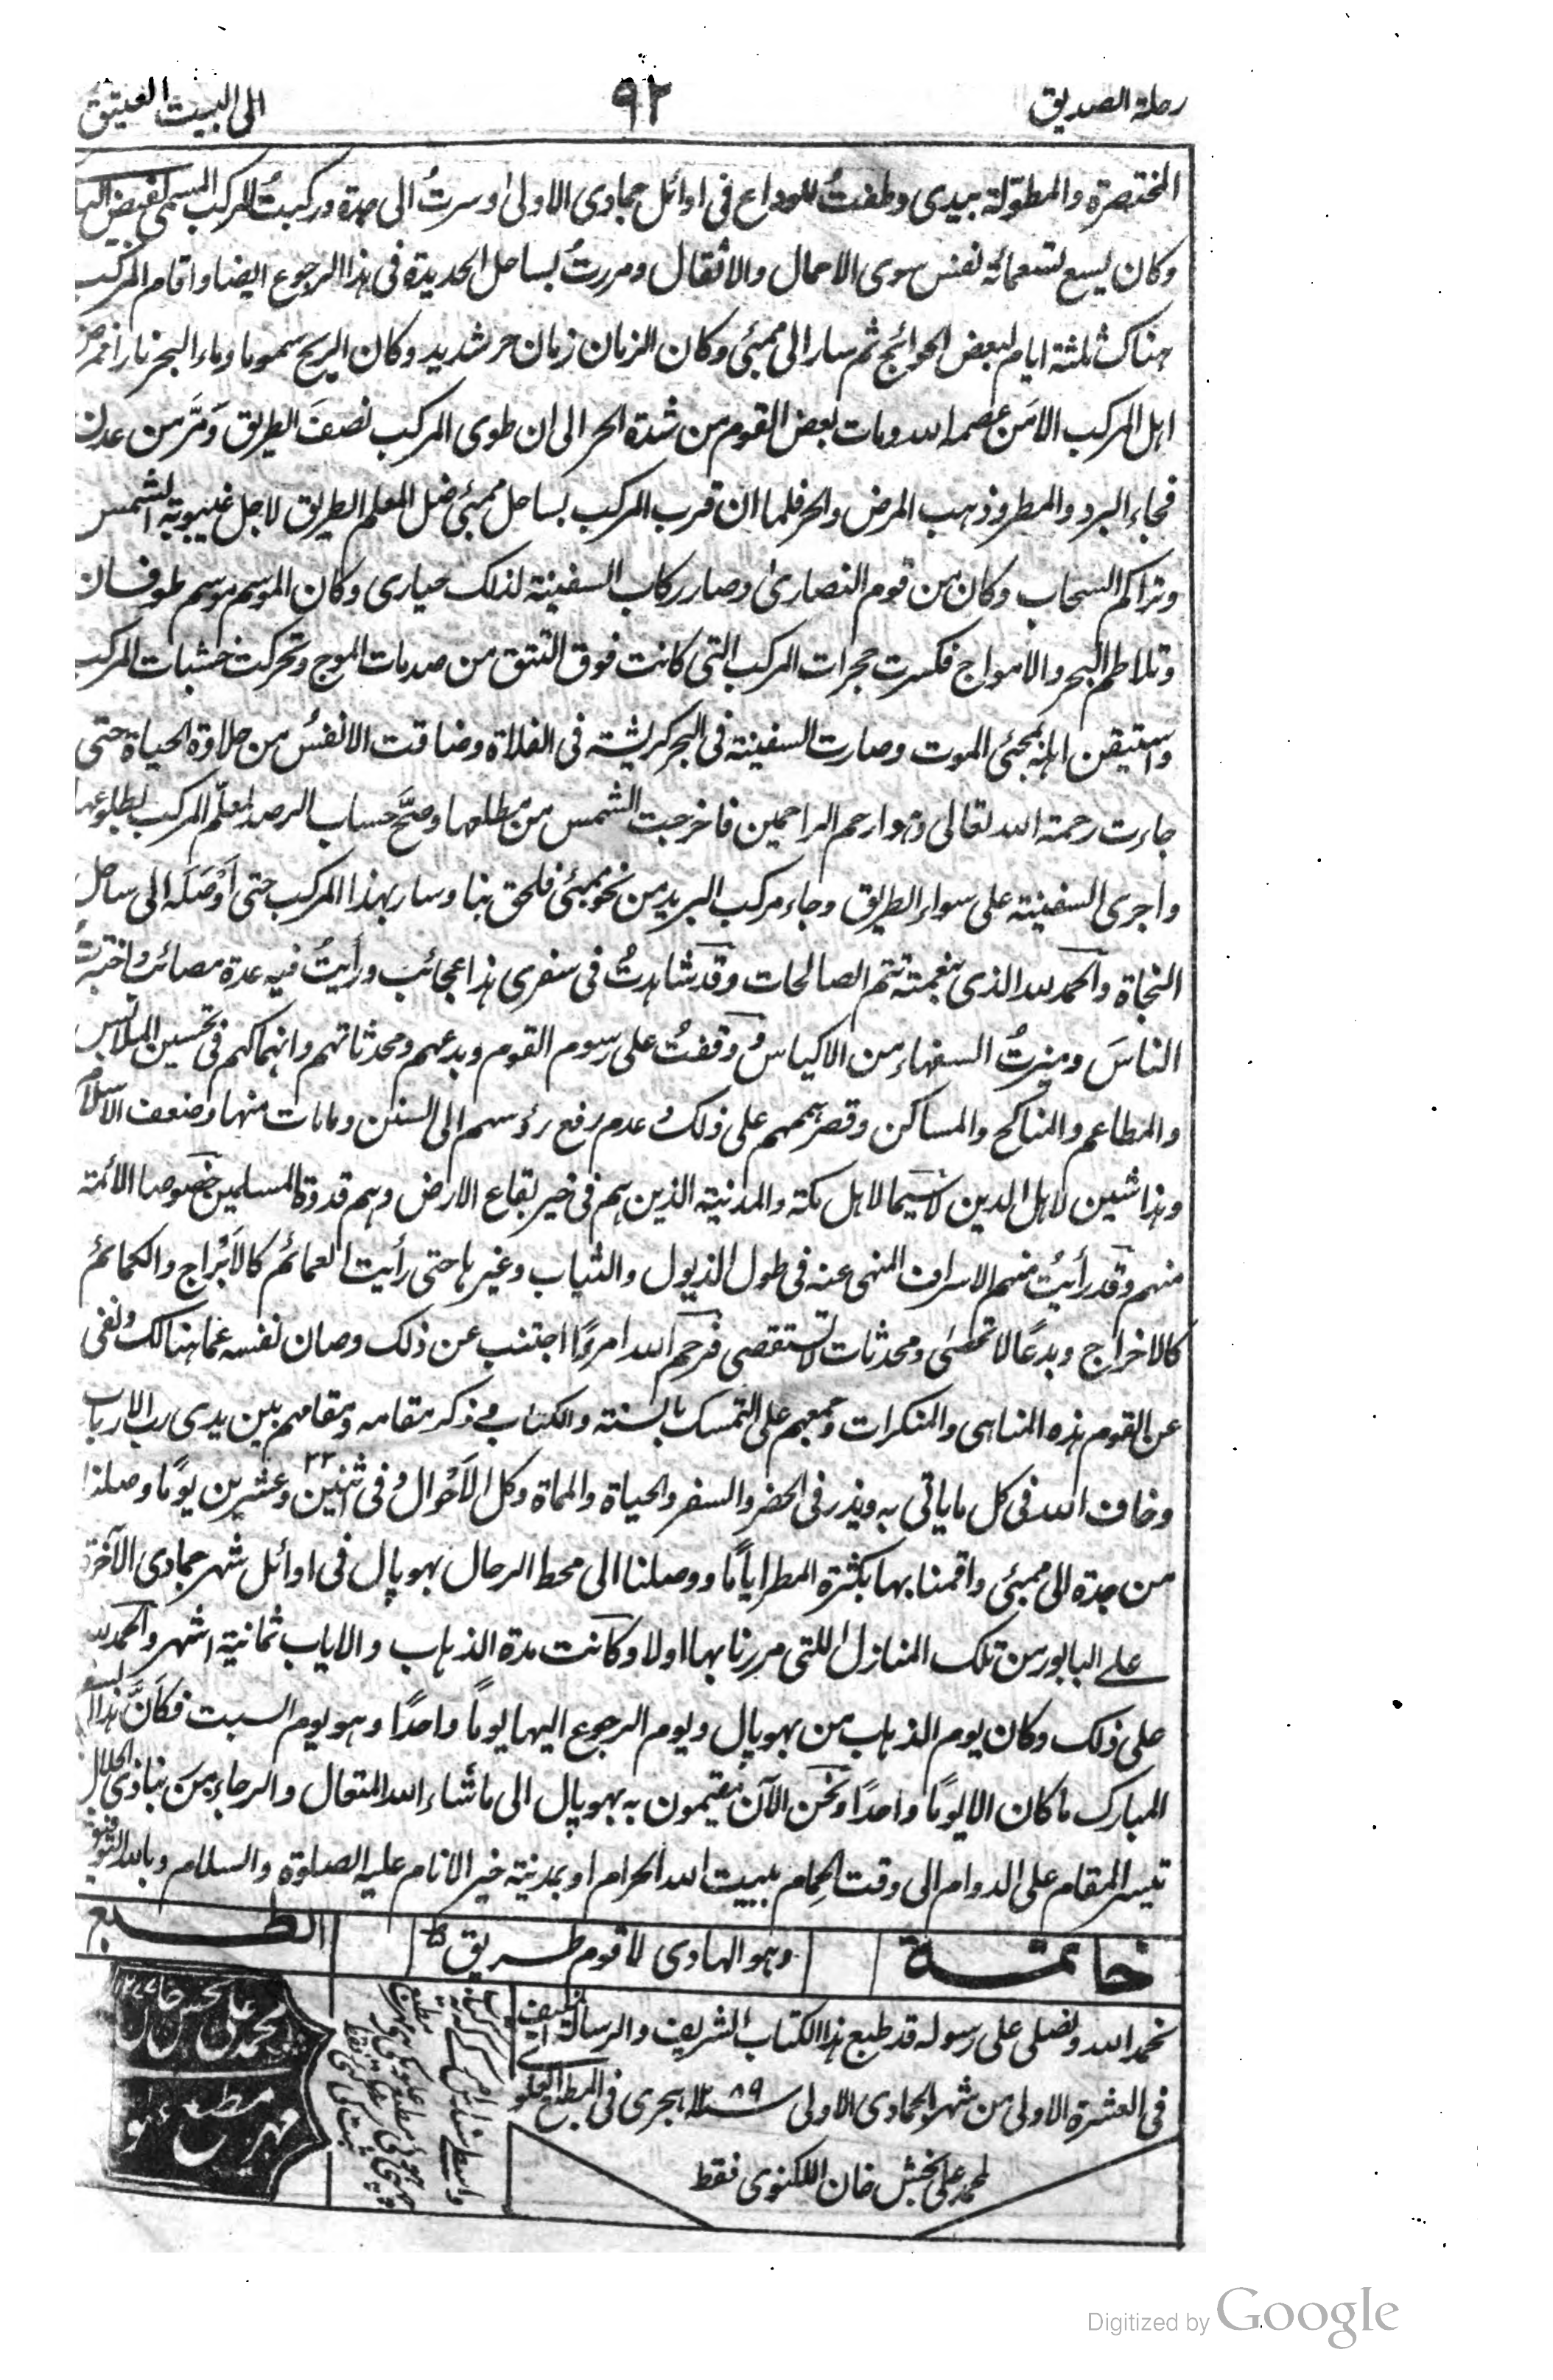 رحلة الصديق
٩٢
الى البيت العتيق
المختصرة والمطوّلة بيدى وطفتُ للوداع فى اوائل جمادى الاولىٰ وسرتُ الى جدة وركبتُ المركب المسمى بفيض
وكان يسع تسعمائة نفس سوى الاحمال والاثقال ومررتُ بساحل الحديدة فى هذا الرجوع ايضا واقام المركب
هناك ثلثة ايام لبعض الحوائج ثم سار الى ممبئى وكان الزمان زمان حر شديد وكان الريح سموما وماء البحر نارا فمرض
اهل المركب الا مَن عصمه الله ومات بعض القوم من شدة الحر الى ان طوى المركب نصفَ الطريق وَمَرَّ من عدن
فجاء البرد والمطر وذهب المرض والحر فلما ان قرب المركب بساحل ممبئى ضل المعلم الطريق لاجل غيبوبة الشمس
وتراكم السحاب وكان من قوم النصارىٰ وصار ركاب السفينة لذلك حيارى وكان الموسم موسم طوفان
وتلاطم البحر والامواج فكسرت حجرات المركب التى كانت فوق التتق من صدمات الموج وتحركت خشبات المركب
واستيقن اهله بمجئ الموت وصارت السفينة فى البحر كريشة فى الفلاة وضاقت الانفسُ من حلاوة الحياة حتى
جاءت رحمة الله تعالى وهو ارحم الراحمين فاخرجت الشمس من مطلعها وصَحَّ حساب الرصد لمعلّم المركب بطلوعها
واجرى السفينة على سواء الطريق وجاء مركب البريد من نحو ممبئى فلحق بنا وسار بهذا المركب حتى أوْصَلَه الى ساحل
النجاة والحمد لله الذى بنعمته تتم الصالحات وقد شاهدتُ فى سفرى هذا عجائب ورأيتُ فيه عدة مصائب واختبرتُ
الناسَ وميزتُ السفهاء من الاكياس ووقفتُ على رسوم القوم وبدعهم ومحدثاتهم وانهماكهم فى تحسين الملابس
والمطاعم والمناكح والمساكن وقصر هممهم على ذلك وعدم رفع رؤسهم الى السنن ومامات منها وضعف الاسلام
وهذا شين لاهل الدين لا سيما لاهل مكة والمدينة الذين هم فى خير بقاع الارض وهم قدوة المسلمين خصوصا الأئمة
منهم وقد رأيتُ منهم الاسراف المنهى عنه فى طول الذيول والثياب وغيرها حتى رأيت العمائم كالاَبْراج والكمائم
كالاخراج وبدعًا لا تحصىٰ ومحدثات لا تستقصى فرحم الله امرءًا اجتنب عن ذلك وصان نفسه عما هنالك ونفى
عن القوم هذه المناهى والمنكرات وجمعهم على التمسك بالسنة والكتاب وذكر مقامه ومقامهم بين يدى رب الارباب
وخاف الله فى كل ما يأتى به ويذر فى الحضر والسفر والحياة والمماة وكل الاَحْوال وفى اثنين وعشرين ٢٢ يومًا وصلنا
من جدة الى ممبئى واقمنا بها بكثرة المطر ايامًا ووصلنا الى محط الرحال بهوپال فى اوائل شهر جمادى الآخرة
على البابور من تلك المنازل اللتى مررنا بها اولا وكانت مدة الذهاب والاياب ثمانية اشهر والحمد لله
على ذلك وكان يوم الذهاب من بهوپال ويوم الرجوع اليها يوماً واحدًا وهو يوم السبت فكأنَّ هذا السفر
المبارك ما كان الا يومًا واحدًا ونحن الآن مقيمون به بهوپال الى ما شاء الله المتعال والرجاء من ربنا ذى الجلال
تيسر المقام على الدوام الى وقت الحِمام ببيت الله الحرام او بمدينة خير الانام عليه الصلوة والسلام وبالله التوفيق
خاتمة
وهو الهادى لاقوم طريق
الطبع
نحمد الله ونصلى على رسوله قد طبع هذا الكتاب الشريف والرسالة
فى العشرة الاولى من شهر الجمادى الاولى سنة ١٢٨٩ هجرى فى المطبع العلوى
لمحمد على بخش خان اللكنوى فقط
محمد على بخش خان
مهر مطبع
Digitized by Google